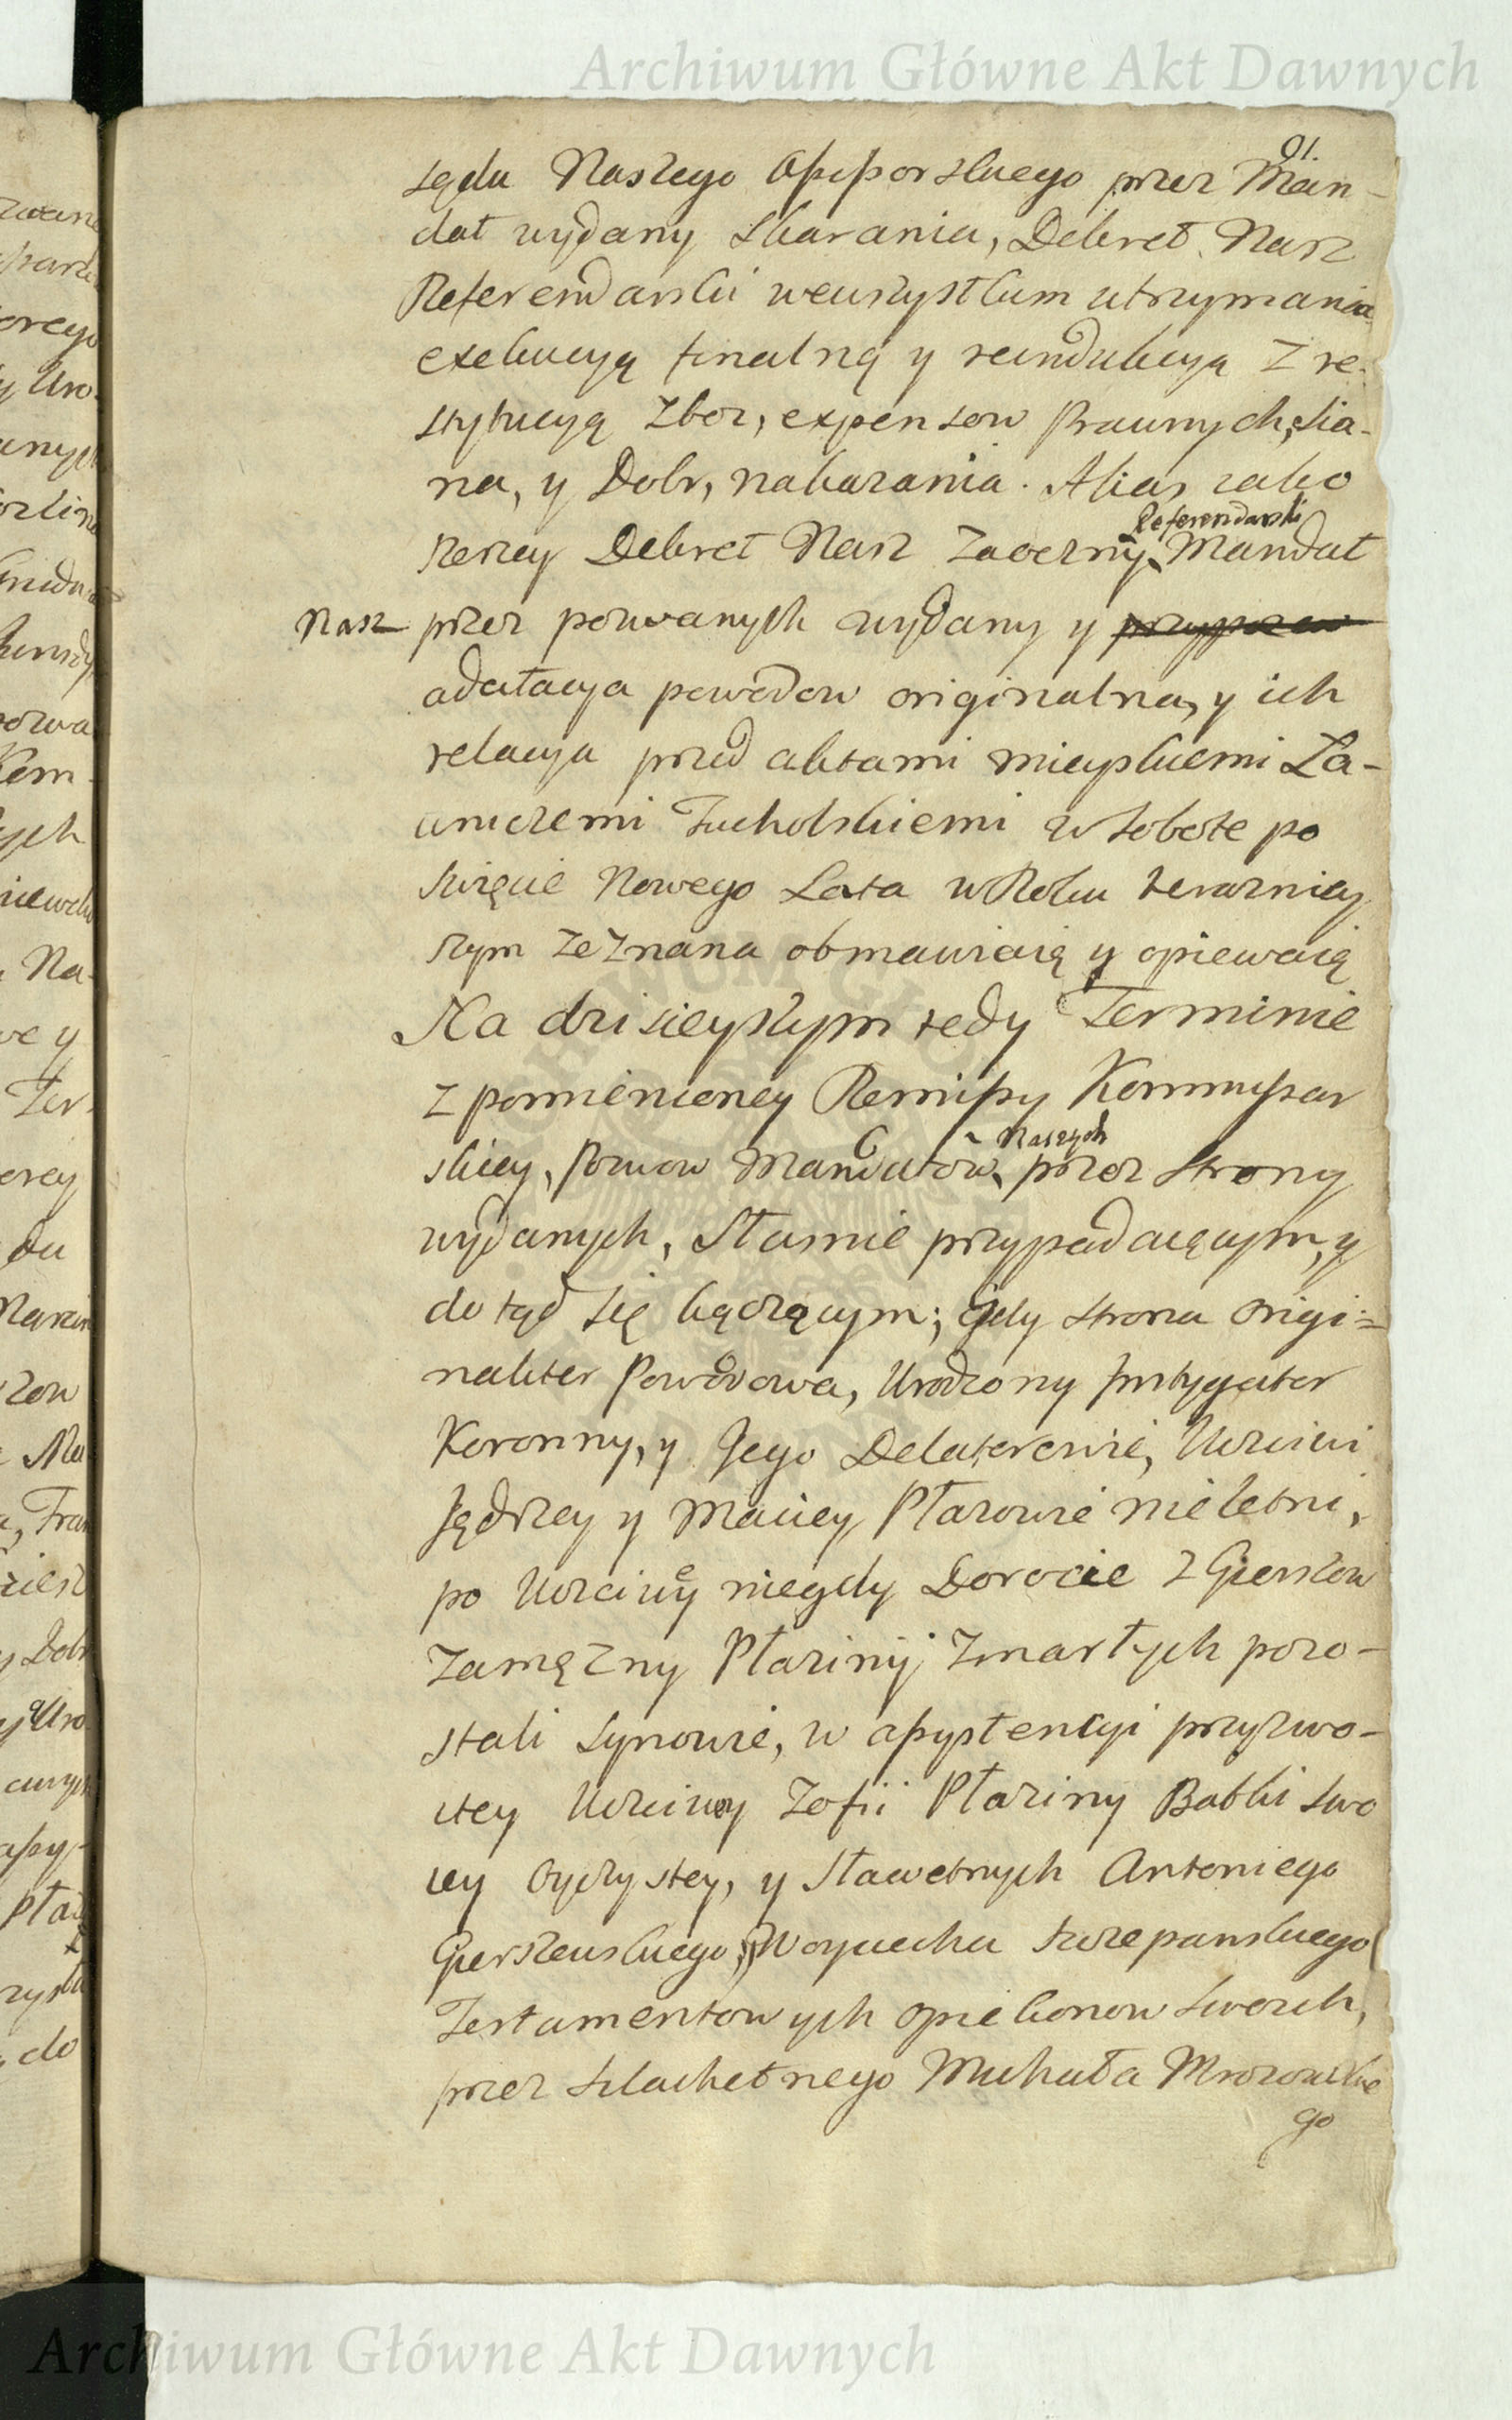 Archiwum Główne Akt Dawnych
91.
sądu Naszego Assessorskiego przez Man-
dat wydany skarania, Dekret Nasz
Referendarski wewszystkim utrzymania
exekucyą finalną y reindukcyą z re-
stytucyą zboż, expensow Prawnych, sia-
na, y Dobr, nakazania. Alias iako
szerzey Dekret Nasz Zaoczny Referendarski Mandat
Nasz przez pozwanych wydany y
adcitacya powodow originalna, y ich
relacya przed aktami mieyskiemi Ła-
wniczemi Tucholskiemi w Sobotę po
święcie Nowego Lata w Roku terazniey
szym zeznana obmawiaią y opiewaią
Na dzisieyszym tedy Terminie
z pomienioney Remissy Kommissar
skiey, pozwow Mandatow Naszych przez Strony
wydanych, Słusznie przypadaiącym, y
dotąd się kączącym; gdy strona origi=
naliter Powodowa, Urodzony Instygator
Koronny, y Jego Delatorowie, Uczciwi
Jędrzey y Maciey Płazowie nieletni,
po Uczciwey niegdy Dorocie z Gierszow
Zamężny Płaziny Zmarłych pozo-
stali Synowie, w assystencyi przyzwo-
itey Uczciwey Zofii Płaziny Babki swo
iey Oyczystey, y Sławetnych Antoniego
Gierszewskiego, Woyciecha Szczepanskiego
Testamentowych Opiekonow swoich,
przez Szlachetnego Michała Mrozowskie
go
Archiwum Główne Akt Dawnych